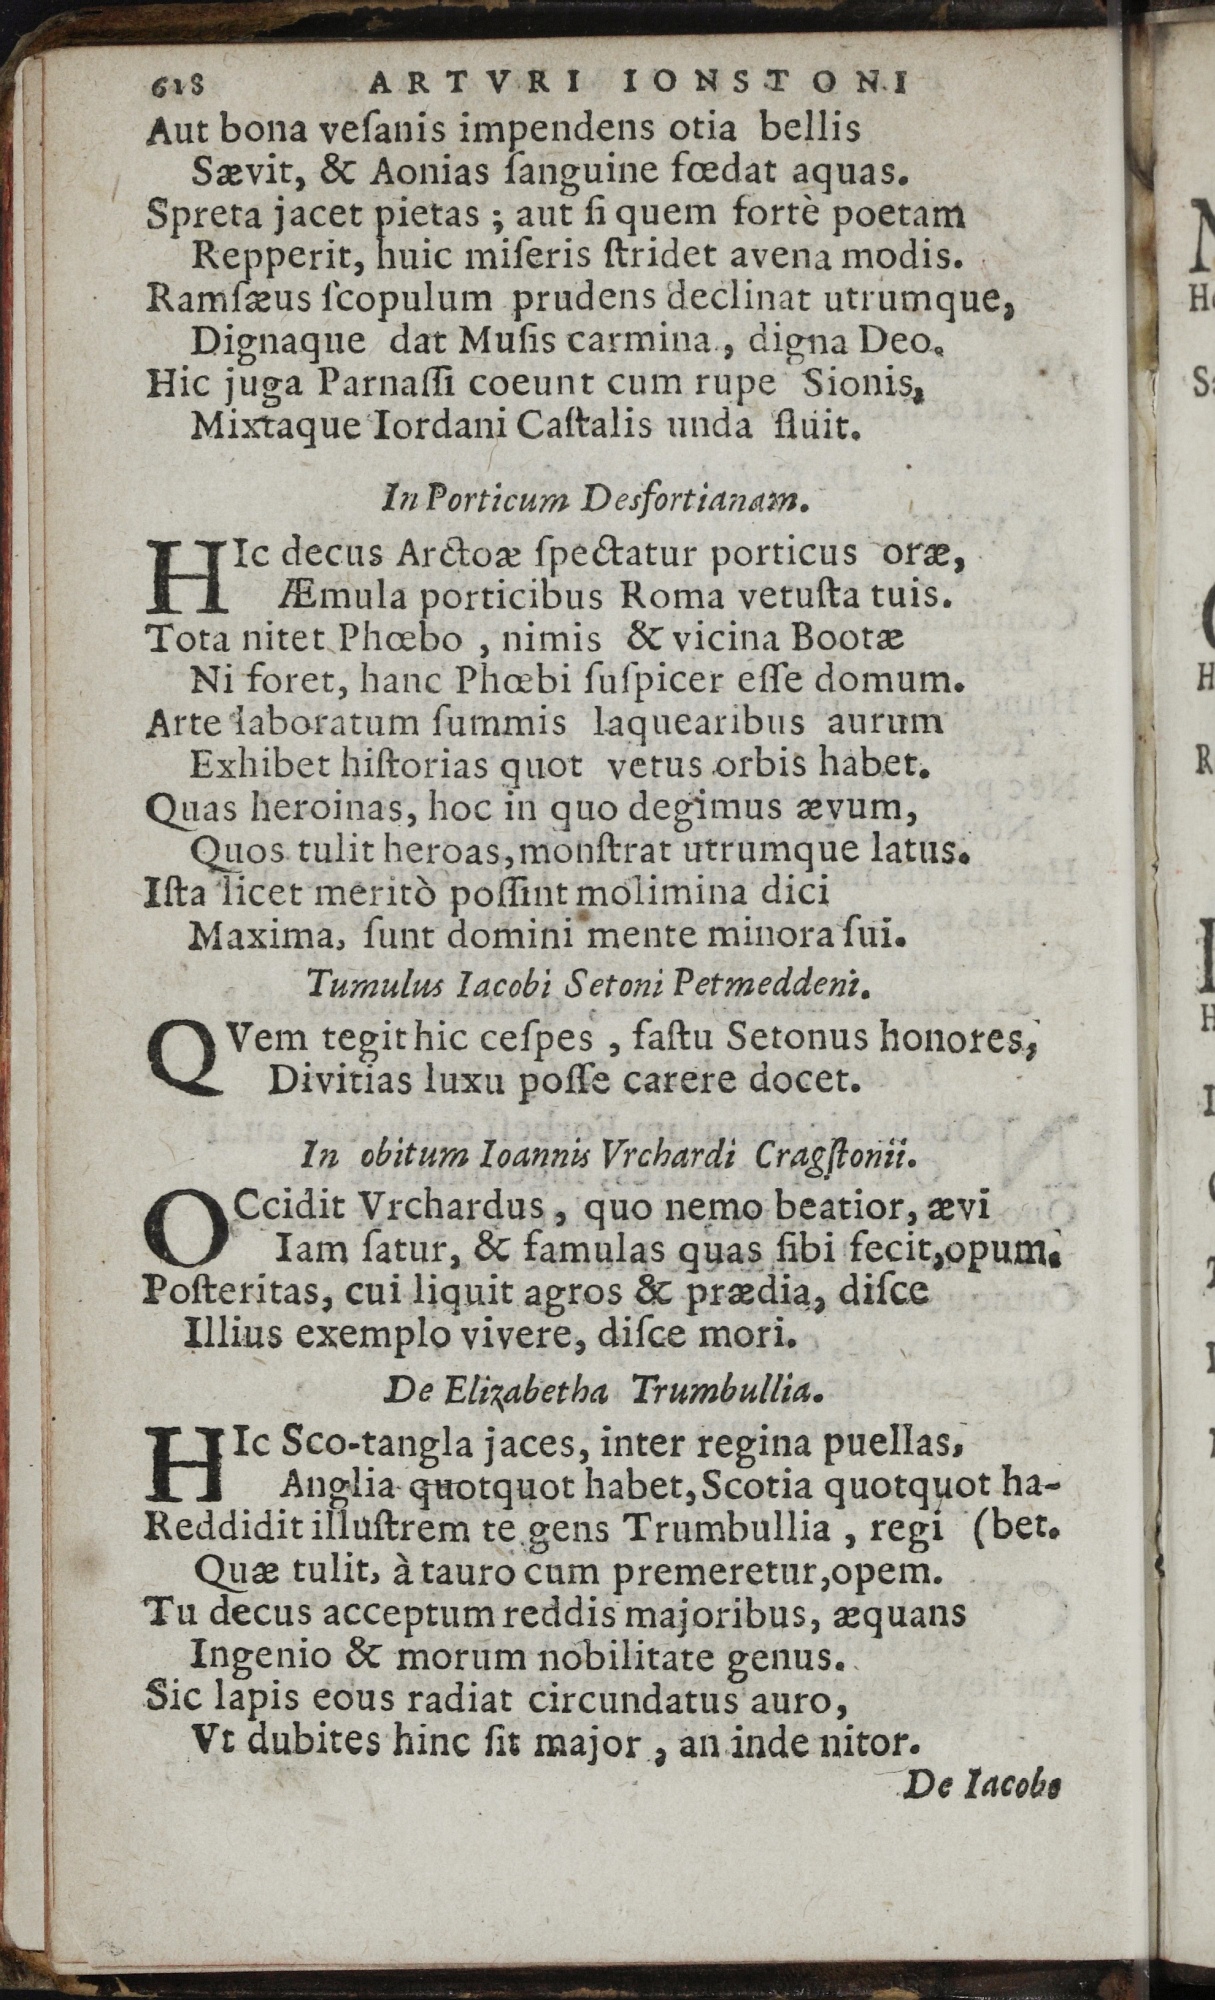 618 ARTVRI IONSTONI
Aut bona veſanis impendens otia bellis
Sævit, & Aonias ſanguine fœdat aquas.
Spreta jacet pietas ; aut ſi quem fortè poetam
Repperit, huic miſeris ſtridet avena modis.
Ramſæus ſcopulum prudens declinat utrumque,
Dignaque dat Muſis carmina, digna Deo.
Hic juga Parnaſſi coeunt cum rupe Sionis,
Mixtaque Iordani Caſtalis unda fluit.
In Porticum Desfortianam.
HIc decus Arctoæ ſpectatur porticus oræ,
Æmula porticibus Roma vetuſta tuis.
Tota nitet Phœbo , nimis & vicina Bootæ
Ni foret, hanc Phœbi ſuſpicer eſſe domum.
Arte laboratum ſummis laquearibus aurum
Exhibet hiſtorias quot vetus orbis habet.
Quas heroinas, hoc in quo degimus ævum,
Quos tulit heroas, monſtrat utrumque latus.
Iſta licet meritò poſſint molimina dici
Maxima, ſunt domini mente minora ſui.
Tumulus Iacobi Setoni Petmeddeni.
QVem tegit hic ceſpes , faſtu Setonus honores,
Divitias luxu poſſe carere docet.
In obitum Ioannis Vrchardi Cragſtonii.
OCcidit Vrchardus , quo nemo beatior, ævi
Iam ſatur, & famulas quas ſibi fecit, opum.
Poſteritas, cui liquit agros & prædia, diſce
Illius exemplo vivere, diſce mori.
De Elizabetha Trumbullia.
HIc Sco-tangla jaces, inter regina puellas,
Anglia quotquot habet, Scotia quotquot ha-
Reddidit illuſtrem te gens Trumbullia , regi (bet.
Quæ tulit, à tauro cum premeretur, opem.
Tu decus acceptum reddis majoribus, æquans
Ingenio & morum nobilitate genus.
Sic lapis eous radiat circundatus auro,
Vt dubites hinc ſit major , an inde nitor.
De Iacobo